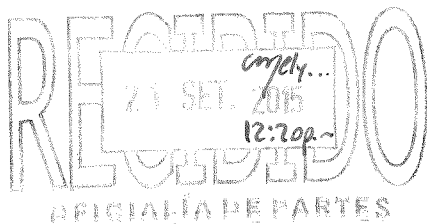 RECIBIDO
21 SET. 2015
12:20p.~
OFICIALÍA DE PARTES